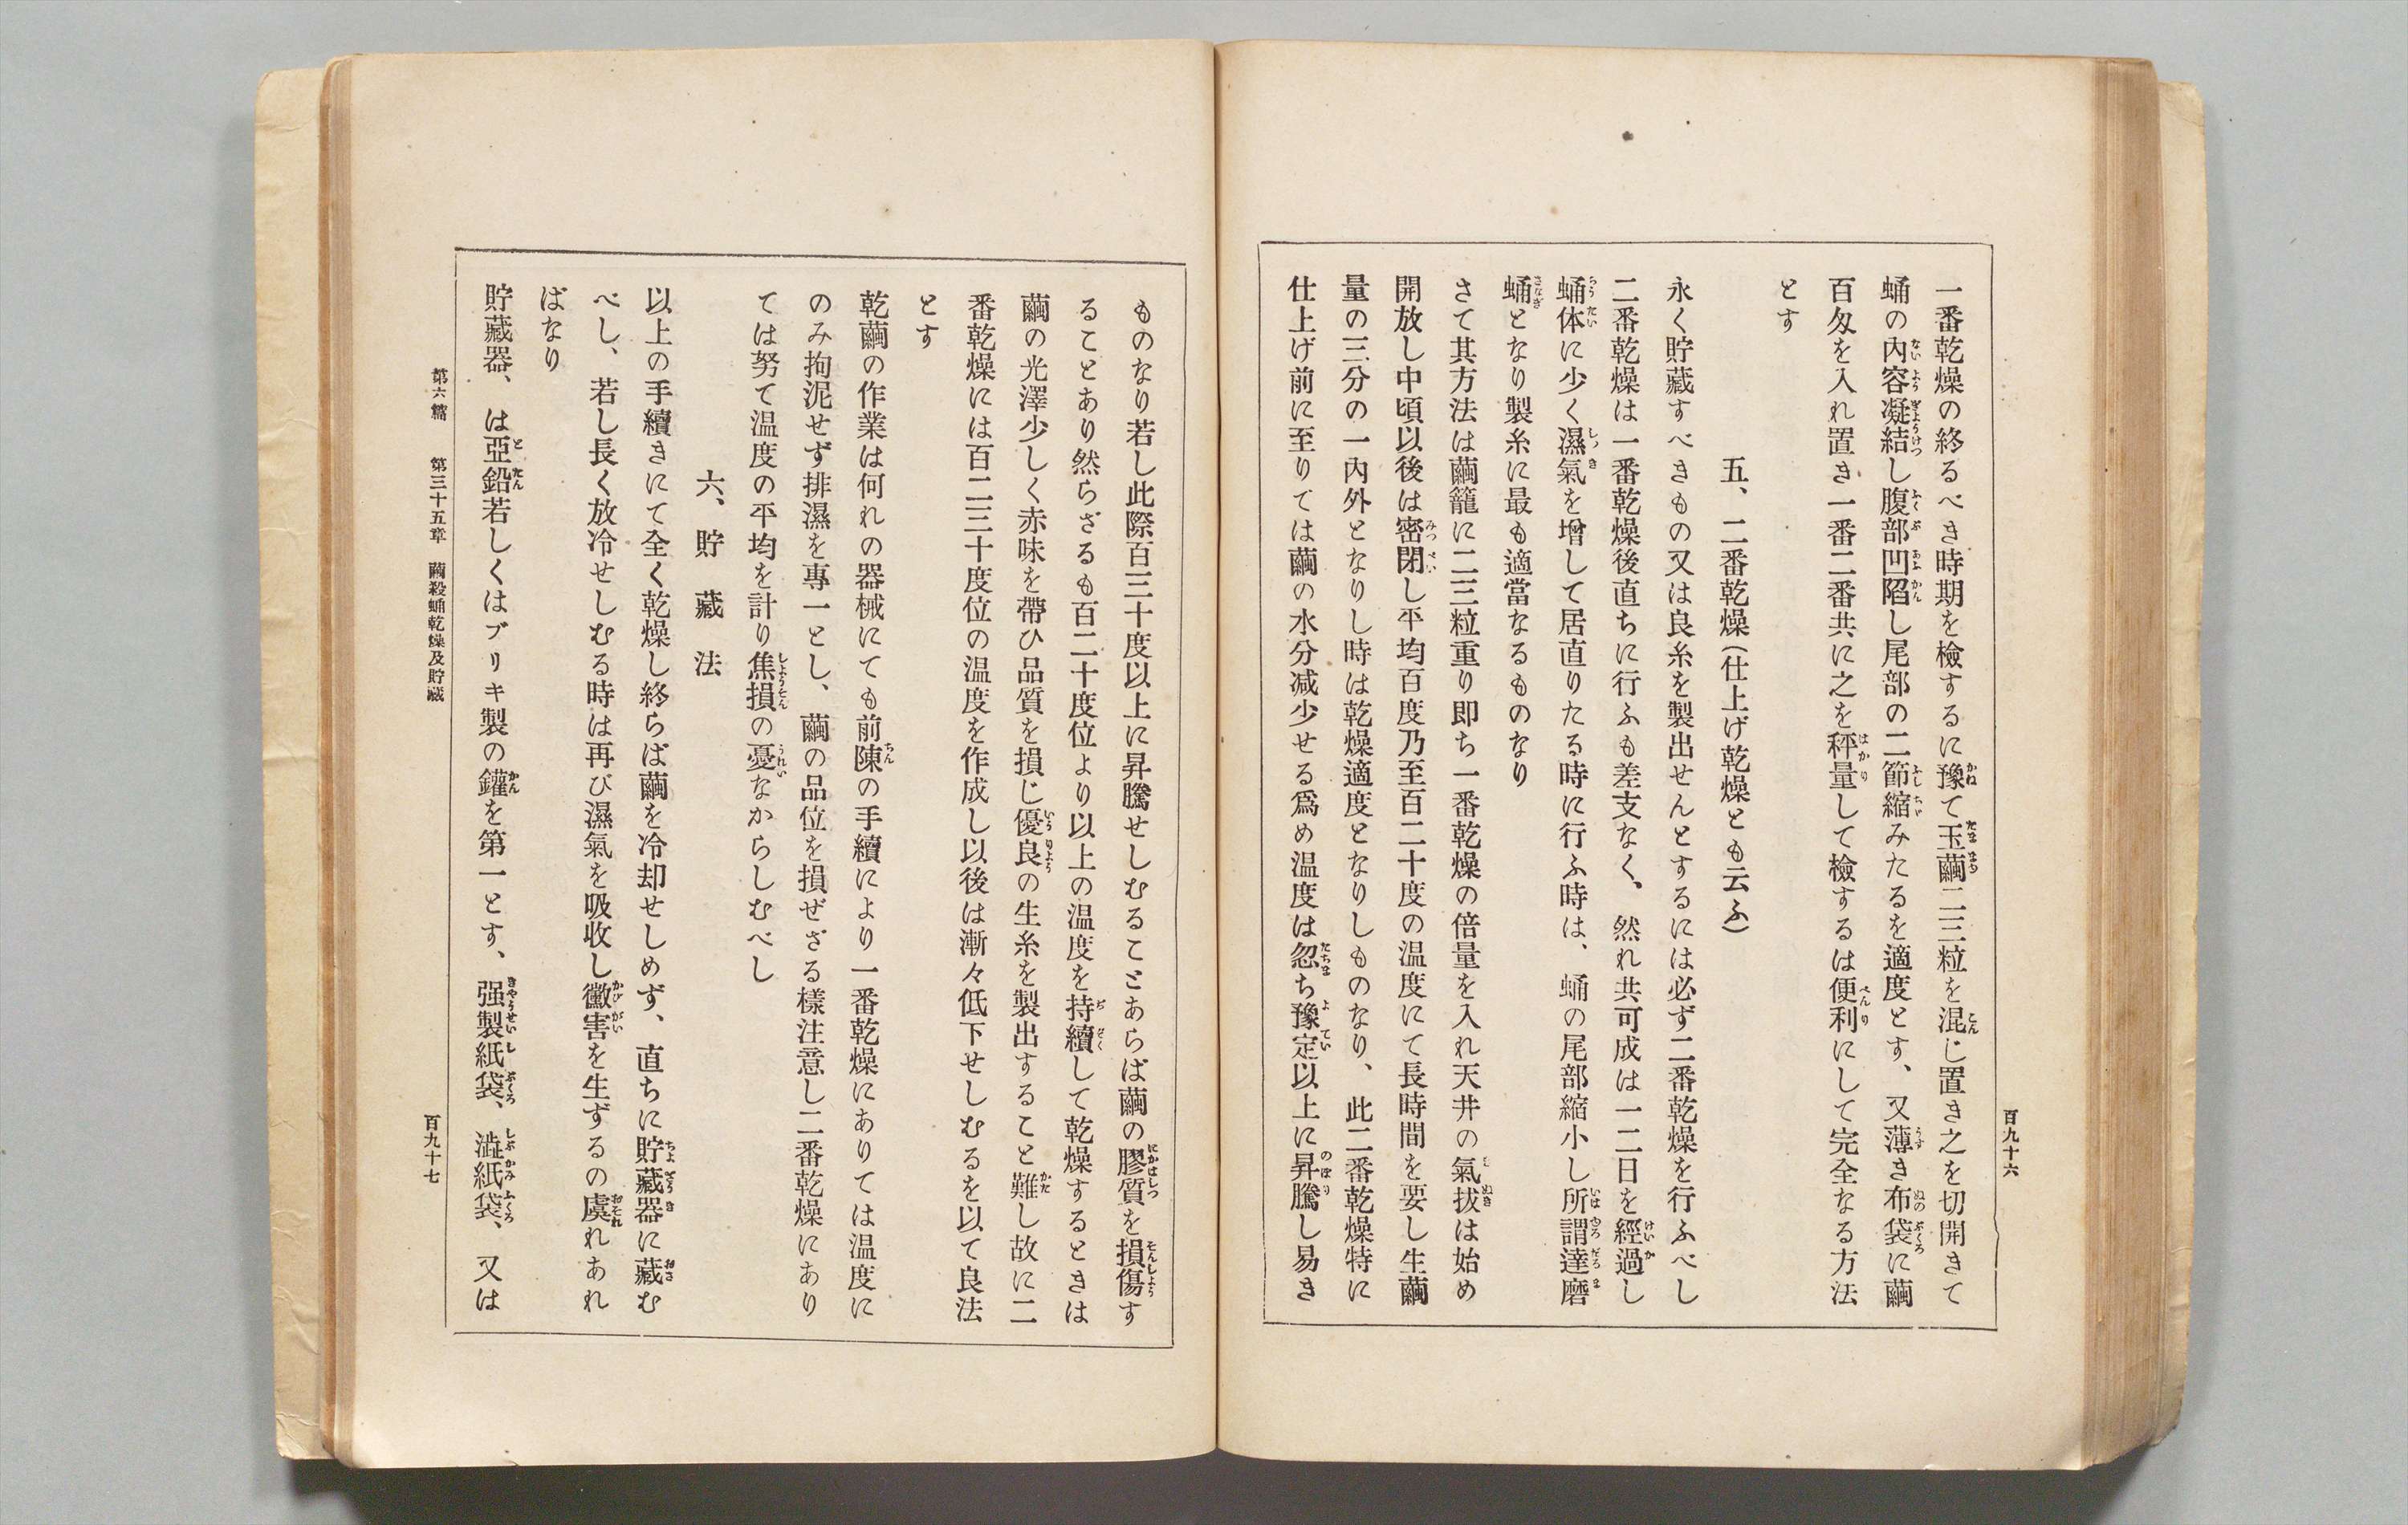 一番乾燥の終るべき時期を檢するに豫て玉繭二三粒を混じ置き之を切開きて
蛹の內容凝結し腹部凹陷し尾部の二節縮みたるを適度とす、又薄き布袋に繭
百匁を入れ置き一番二番共に之を秤量して檢するは便利にして完全なる方法
とす
五、二番乾燥(仕上げ乾燥とも云ふ)
永く貯藏すべきもの又は良糸を製出せんとするには必ず二番乾燥を行ふべし
二番乾燥は一番乾燥後直ちに行ふも差支なく、然れ共可成は一二日を經過し
蛹体に少く濕氣を增して居直りたる時に行ふ時は、蛹の尾部縮小し所謂達磨
蛹となり製糸に最も適當なるものなり
さて其方法は繭籠に二三粒重り即ち一番乾燥の倍量を入れ天井の氣拔は始め
開放し中頃以後は密閉し平均百度乃至百二十度の温度にて長時間を要し生繭
量の三分の一內外となりし時は乾燥適度となりしものなり、此二番乾燥特に
仕上げ前に至りては繭の水分减少せる爲め温度は忽ち豫定以上に昇騰し易き
百九十六
ものなり若し此際百三十度以上に昇騰せしむることあらば繭の膠質を損傷す
ることあり然らざるも百二十度位より以上の温度を持續して乾燥するときは
繭の光澤少しく赤味を帶ひ品質を損じ優良の生糸を製出すること難し故に二
番乾燥には百二三十度位の温度を作成し以後は漸々低下せしむるを以て良法
とす
乾繭の作業は何れの器械にても前陳の手續により一番乾燥にありては温度に
のみ拘泥せず排濕を專一とし、繭の品位を損ぜざる樣注意し二番乾燥にあり
ては努て温度の平均を計り焦損の憂なからしむべし
六、貯藏法
以上の手續きにて全く乾燥し終らば繭を冷却せしめず、直ちに貯藏器に藏む
べし、若し長く放冷せしむる時は再び濕氣を吸收し黴害を生ずるの虞れあれ
ばなり
貯藏器、は亞鉛若しくはブリキ製の鑵を第一とす、强製紙袋、澁紙袋、又は
第六篇 第三十五章 繭殺蛹乾燥及貯藏
百九十七